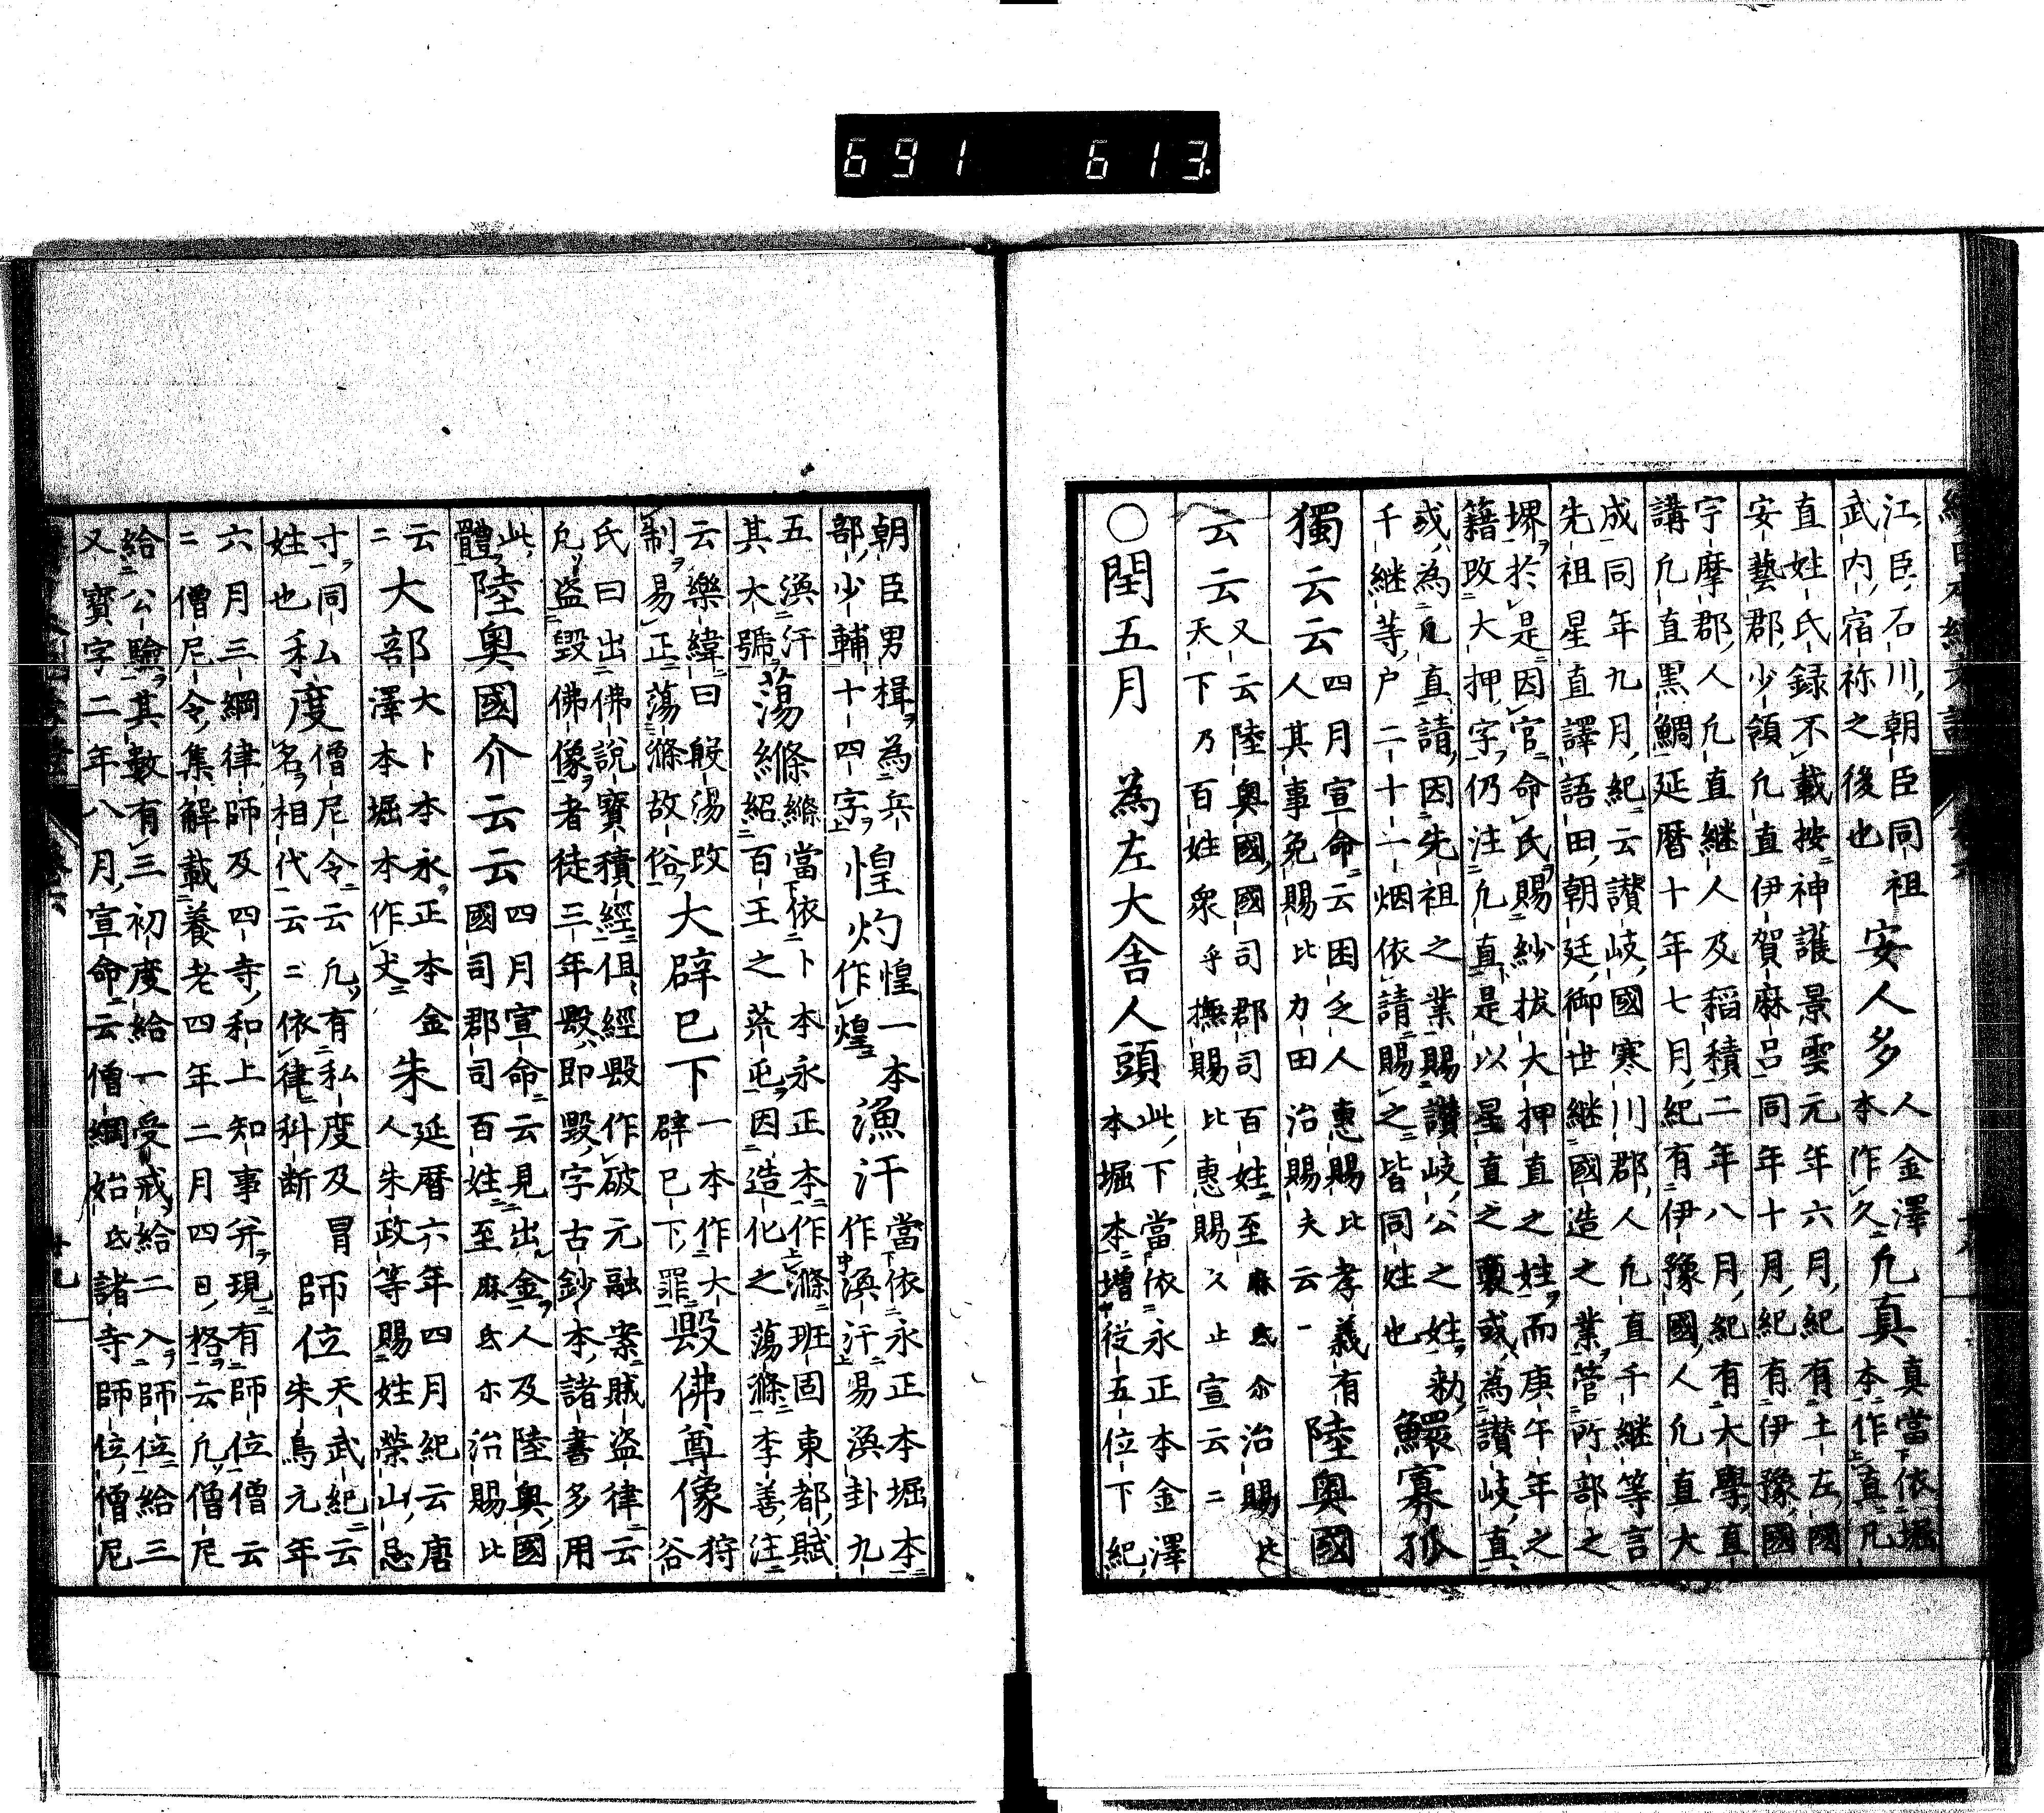 691 613
江臣石川朝臣同祖
武内宿祢之後也
安人多
人金澤
本作久
凡真
真當依堀
本作真凡
直姓氏録不載按神護景雲元年六月紀有土左國
安藝郡少領凡直伊賀麻呂同年十月紀有伊豫國
宇摩郡人凡直継人及稻積二年八月紀有大學直
講凡直黒鯛延暦十年七月紀有伊豫國人凡直大
成同年九月紀云讃岐國寒川郡人凡直千継等言
先祖星直譯語田朝廷御世継國造之業管所部之
堺於是因官命氏賜紗抜大押直之姓而庚午年之
籍改大押字仍注凡直是以星直之裔或為讃岐直
或為凡直請因先祖之業賜讃岐公之姓勅
千継等户二十一烟依請賜之皆同姓也
鰥寡孤
獨云云
四月宣命云困乏人惠賜比孝義有
人其事免賜比力田治賜夫云一
陸奥國
云云
又云陸奥國國司郡司百姓至麻弖尓治賜比
天下乃百姓衆乎撫賜比惠賜久止宣云二
○閏五月 為左大舎人頭
此下當依永正本金澤
本堀本増従五位下紀
朝臣男楫為兵
部少輔十四字
惶灼
惶一本
作煌
漁汗
當依永正本堀本
作渙汗易渙卦九
五渙汗
其大號
蕩縧
縧當依卜本永正本作滌班固東都賦
紹百王之荒屯因造化之蕩滌李善注
云樂緯曰殷湯改
制易正蕩滌故俗
大辟已下
一本作大
辟已下罪
毀佛尊像
狩
谷
氏曰出佛說寶積經但經毀作破元融案賊盗律云
凡盗毀佛像者徒三年毀即毀字古鈔本諸書多用
此
體
陸奥國介云云
四月宣命云見出金人及陸奥國
國司郡司百姓至麻弖尓治賜比
云
二
大部
大卜本永正本金
澤本堀本作犬
朱
延暦六年四月紀云唐
人朱政等賜姓榮山忌
寸同
姓也
私度
僧尼令云凡有私度及冒
名相代云二依律科断
師位
天武紀云
朱鳥元年
六月三綱律師及四寺和上知事并現有師位僧云
二僧尼令集解載養老四年二月四日格云凡僧尼
給公驗其數有三初度給一受戒給二入師位給三
又寶字二年八月宣命云僧綱始弖諸寺師位僧尼